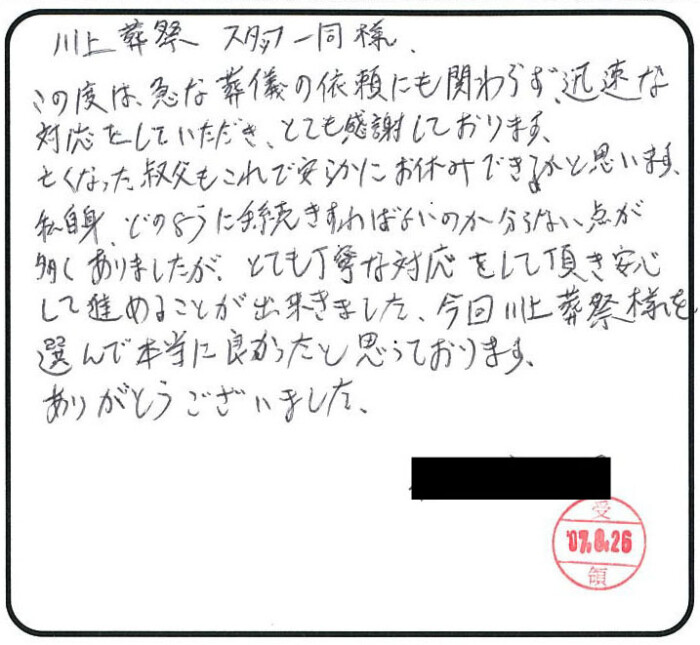 川上葬祭 スタッフ一同様.
この度は、急な葬儀の依頼にも関わらず、迅速な
対応をしていただき、とても感謝しております。
亡くなった叔父もこれで安らかにお休みできるかと思います。
私自身、どのように手続きすればよいのか分らない点が
多くありましたが、とても丁寧な対応をして頂き安心
して進めることが出来きました。今回川上葬祭様を
選んで本当に良かったと思っております。
ありがとうございました。
受
'07.8.26
領